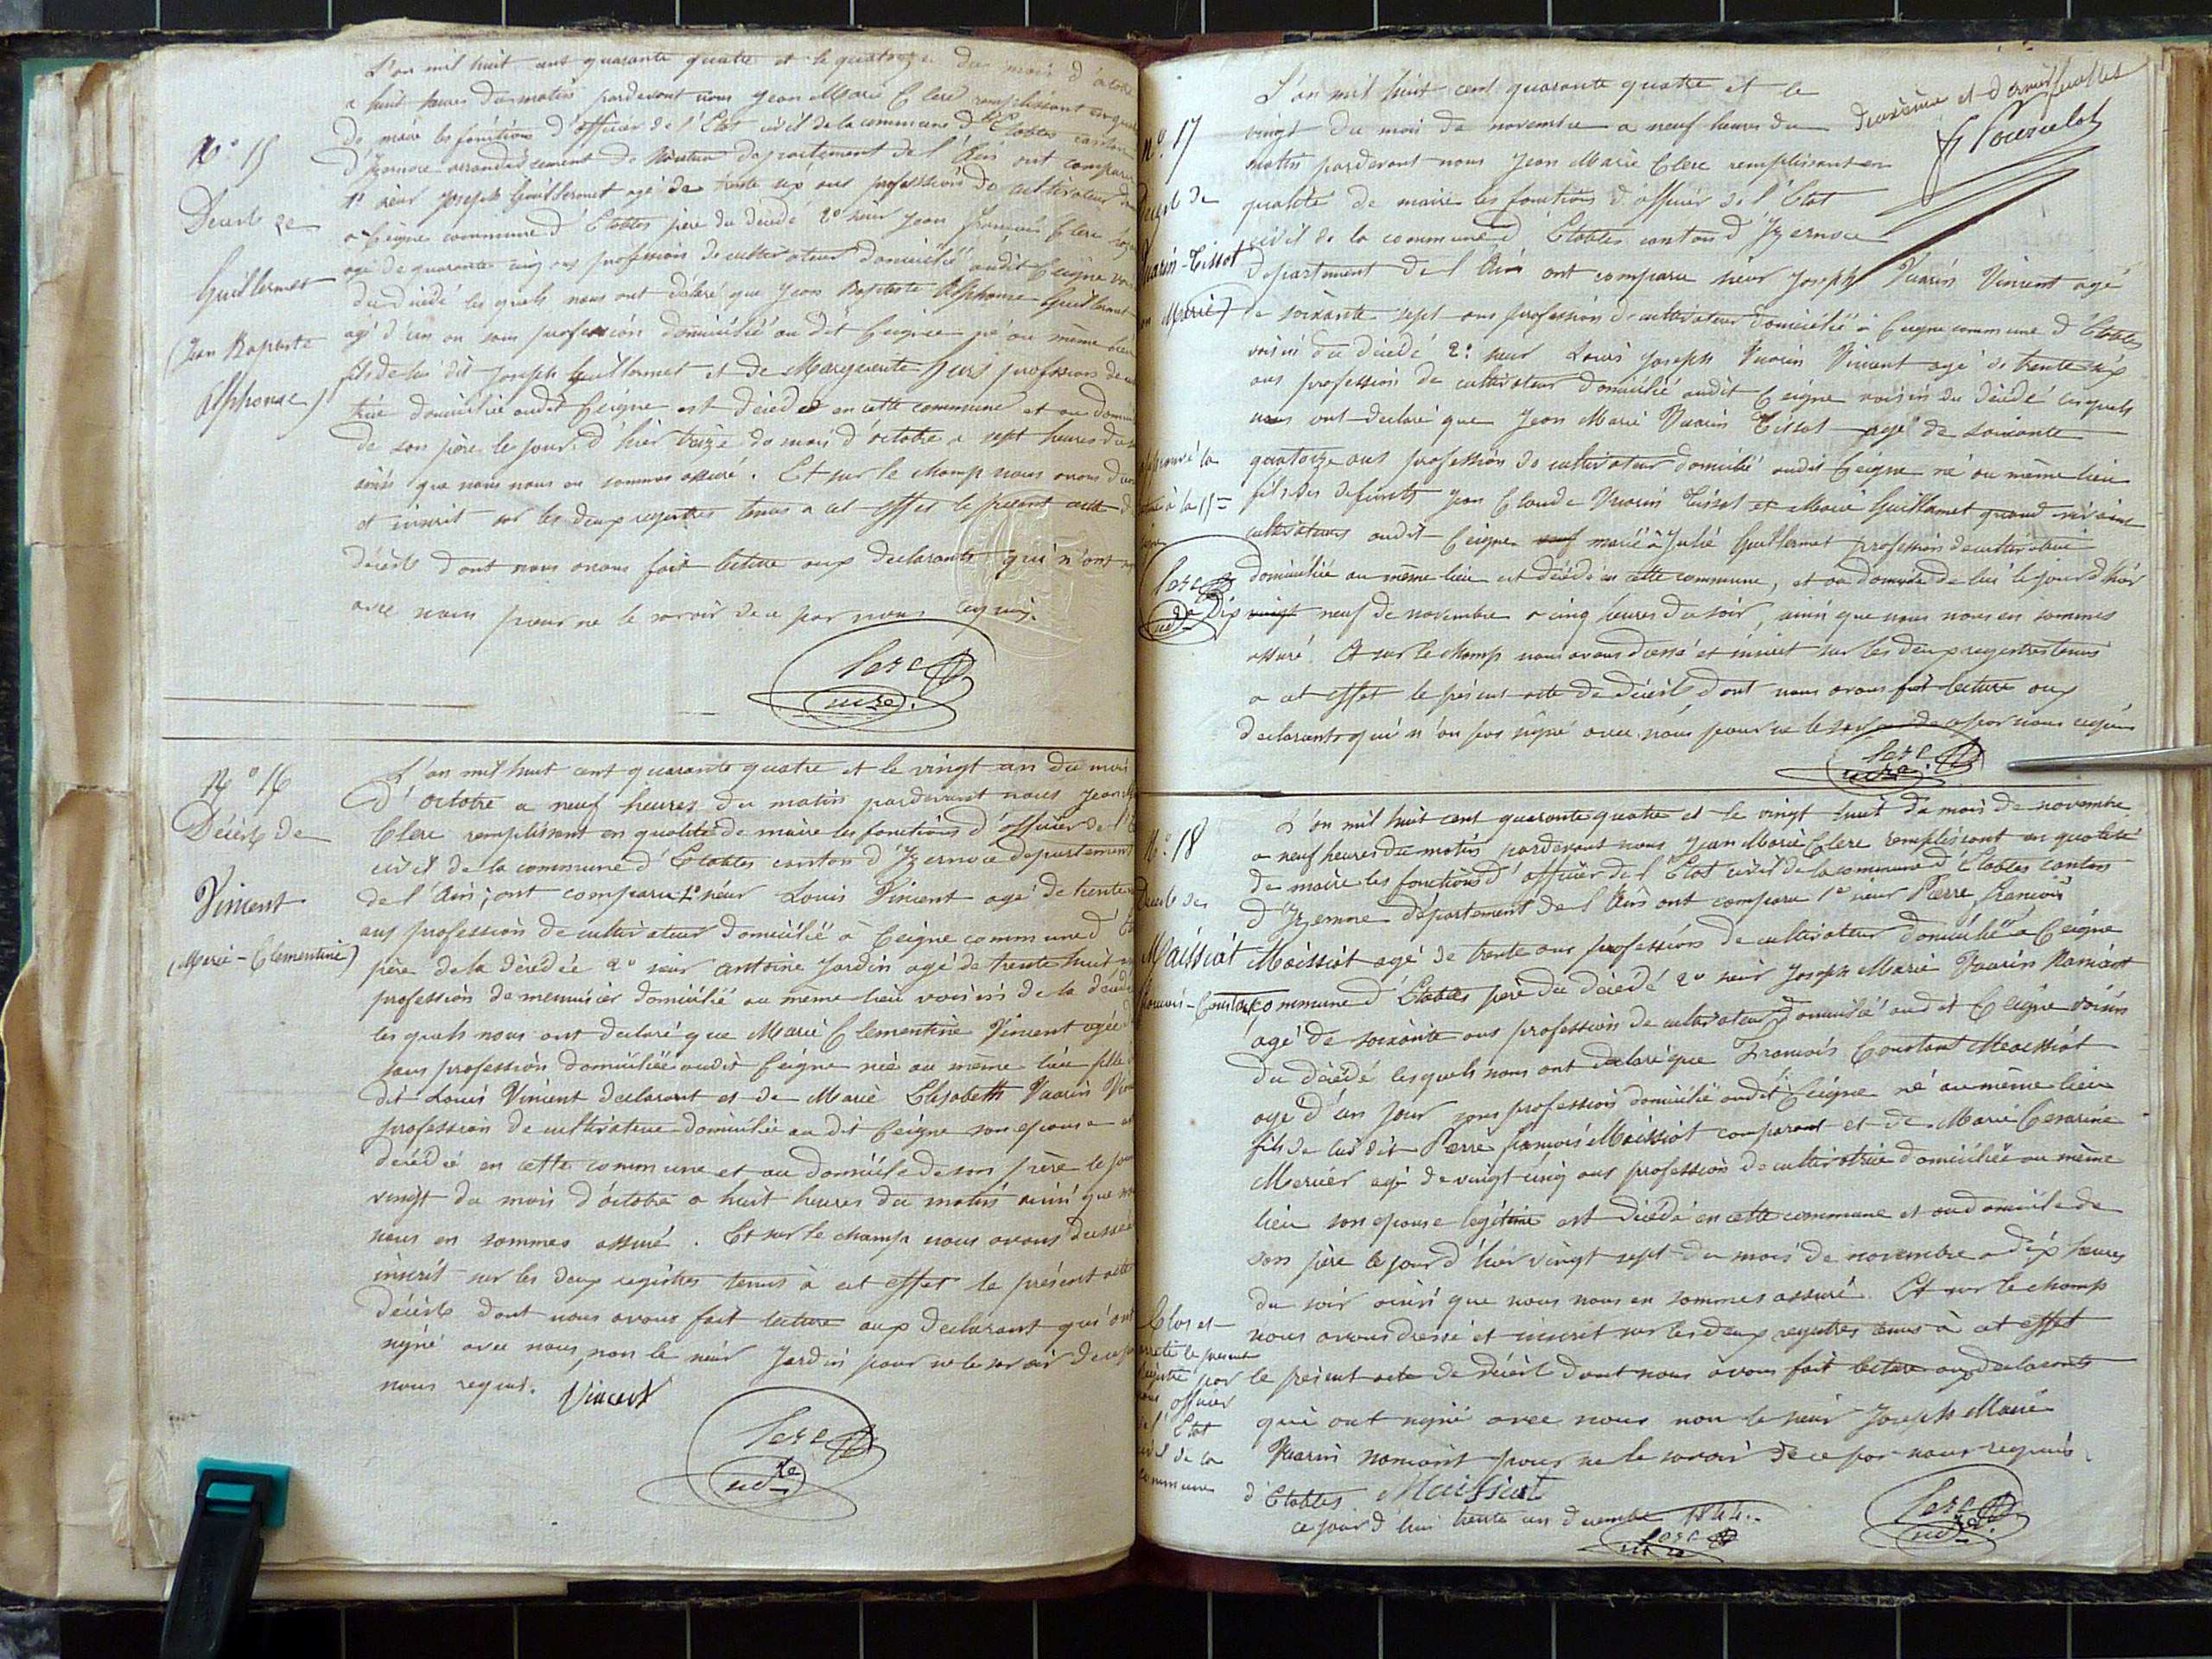 L'an mil huit cent quarante quatre et le quatorze du mois d'octobre
a huit heures du matin pardevant nous Jean Marie Clerc remplissant en
de maire les fonctions d'officier de l'Etat civil de la commune d'Etables canton
N° 15
d'Izernore arrondissement de Nantua departement de l'Ain ont comparu
1° sieur Joseph Guillermet agé de trente six ans profession de cultivateur
Décès de
a Ceigne commune d'Etables père du décédé 2° sieur Jean François Clerc
agé de quarante cinq ans profession de cultivateur domicilié audit Ceigne
Guillermet
du décédé les quels nous ont déclaré que Jean Baptiste Alphonse Guillermet
(Jean Baptiste
agé d'un an sans profession domicilié au dit Ceigne né au même lieu
fils de lui dit Joseph Guillermet et de Marguerite profession de
Alphonse)
domicilié audit Ceigne est décédé en cette commune et au
de son père le jour d'hier treize du mois d'octobre a sept heures du
ainsi que nous nous en sommes assuré. Et sur le champ nous avons
et inscrit sur les deux registres tenus a cet effet le présent acte
décès dont nous avons fait lecture aux declarants qui n'ont
avec nous pour ne le savoir de ce par nous requis.
Clerc
mre
N° 16
L'an mil huit cent quarante quatre et le vingt un du mois
d'octobre a neuf heures du matin pardevant nous Jean
Décès de
Clerc remplissant en qualité de maire les fonctions d'officier de l'
civil de la commune d'Etables canton d'Izernore departement
Vincent
de l'Ain; ont comparu 1° sieur Louis Vincent agé de trente
ans profession de cultivateur domicilié à Ceigne commune d'
(Marie-Clementine)
père de la décédée 2° sieur Antoine Jardin agé de trente huit
profession de menuisier domicilié au même lieu voisin de la
les quels nous ont declaré que Marie Clementine Vincent agée
sans profession domiciliée audit Ceigne née au même lieu fille
dit Louis Vincent declarant et de Marie Elisabeth Vuarin
profession de domiciliée au dit Ceigne son epouse
décédée en cette commune et au domicile de son père le jour
vingt du mois d'octobre a huit heures du matin ainsi que
nous en sommes assuré. Et sur le champ nous avons dressé
inscrit sur les deux registres tenus à cet effet le présent acte
décès dont nous avons fait lecture aux declarant qui ont
signé avec nous, non le sieur Jardin pour ne le savoir de ce
nous requis. Vincent
Clerc
mre
L'an mil huit cent quarante quatre et le
deuxième et dernier
N° 17
vingt du mois de novembre a neuf heures du
matin pardevant nous Jean Marie Clerc remplissant en
Décès de
qualité de maire les fonctions d'officier de l'Etat
civil de la commune d'Etables canton d'Izernore
Vuarin-Tissot
departement de l'Ain ont comparu sieur Joseph Vuarin Vincent agé
Marie)
de soixante sept ans profession de cultivateur domicilié à Ceigne commune d'Etables
voisin du décédé 2° sieur Louis Joseph Vuarin Vincent agé de trente six
ans profession de cultivateur domicilié audit Ceigne voisin du décédé lesquels
nous ont declaré que Jean Marie Vuarin Tissot agé de soixante
quatorze ans profession de cultivateur domicilié audit Ceigne né au même lieu
fils des defunts Jean Claude Vuarin Tissot et Marie Guillermet quand vivaient
cultivateurs audit Ceigne marié à Julie Guillermet profession de
domiciliée au même lieu est décédé en cette commune, et au domicile de lui le jour d'hier
dix vingt neuf de novembre a cinq heures du soir, ainsi que nous nous en sommes
assuré. Et sur le champ nous avons dressé et inscrit sur les deux registres tenus
a cet effet le présent acte de décès dont nous avons fait lecture aux
declarants qui n'on pas signé avec nous pour ne le savoir de ce par nous requis
Clerc
mre
Clerc
mre
N° 18
L'an mil huit cent quarante quatre et le vingt huit du mois de novembre
a neuf heures du matin pardevant nous Jean Marie Clerc remplissant en qualité
de maire les fonctions d'officier de l'Etat civil de la commune d'Etables canton
Décès de
d'Izernore département de l'Ain ont comparu 1° sieur Pierre François
Maissiat
Maissiat agé de trente ans profession de cultivateur domicilié a Ceigne
François-Constant
commune d'Etables père du décédé 2° sieur Joseph Marie Vuarin
agé de soixante ans profession de cultivateur domicilié audit Ceigne voisin
du décédé lesquels nous ont declaré que François Constant Maissiat
agé d'un jour sans profession domicilié audit Ceigne né au même lieu
fils de lui dit Pierre François Maissiat comparant et de Marie Cesarine
Mercier agé de vingt cinq ans profession de cultivatrice domiciliée au même
lieu son epouse légitime est décédé en cette commune et au domicile de
son père le jour d'hier vingt sept du mois de novembre a dix heures
du soir ainsi que nous nous en sommes assuré. Et sur le champ
nous avons dressé et inscrit sur les deux registres tenus à cet effet
le présent acte de décès dont nous avons fait lecture aux declarants
qui ont signé avec nous non le sieur Joseph Marie
Vuarin pour ne le savoir de ce par nous requis.
Maissiat
Clerc
mre
Clos et
arrêté le présent
registre par
nous officier
de l'Etat
civil de la
commune
d'Etables
ce jour d'hui trente un decembre 1844.
Clerc
mre